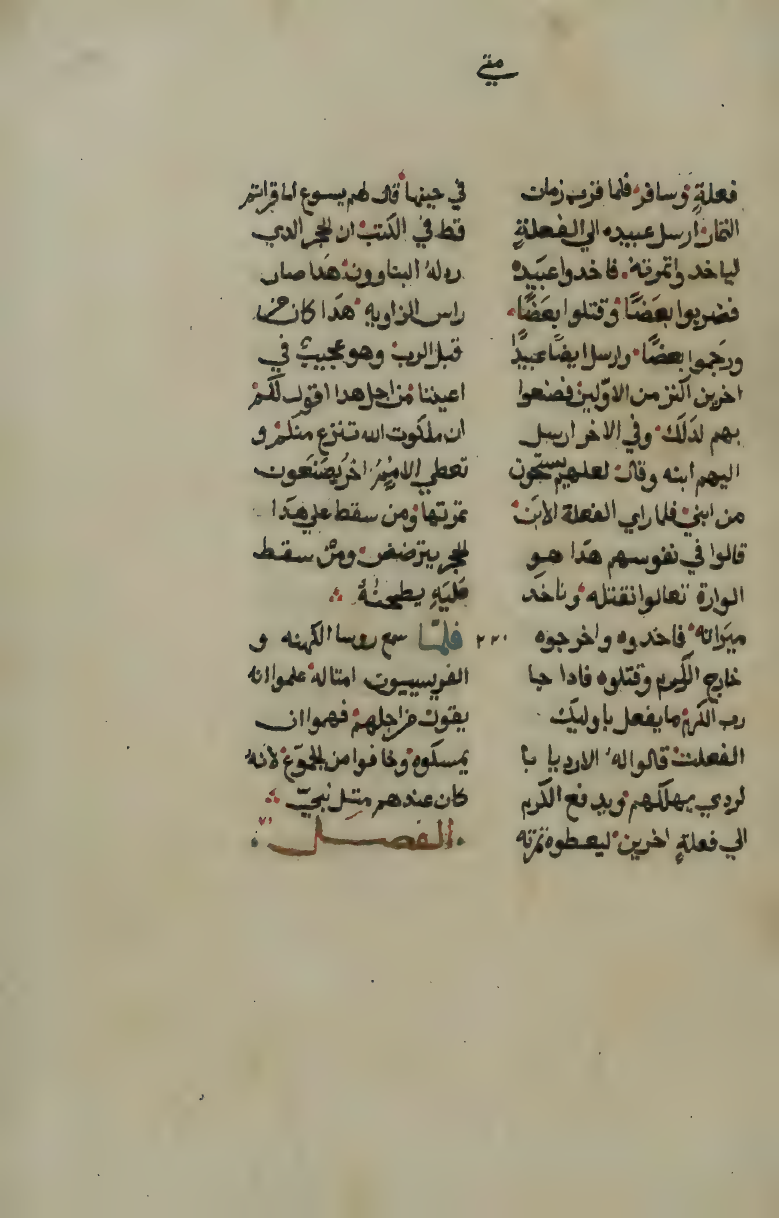 متي
فعلةٍ وسافر فلما قرب زمان
الثمار ارسل عبيده الي الفعلةٍ
لياخدوا ثمرته. فاخدوا عبيده
فضربوا بعضًا وقتلوا بعضًا
ورجموا بعضًا وارسل ايضًا عبيدًا
اخرين اكتر من الاولين فصنعوا
بهم كدلك وفي الاخر ارسل
اليهم ابنه وقال لعلهم يستحون
من ابني فلما راي الفعلة الابن
قالوا في نفوسهم هدا هو
الوارة تعالوا نقتله وناخد
ميراثه فاخدوه واخرجوه
خارج الكرم وقتلوه فادا جا
رب الكرم ما يفعل باوليك
الفعلت قالوا له الارديا با
لردي يهلكهم ويدفع الكرم
الي فعلةٍ اخرين ليعطوه ثمرته
في حينها قال لهم يسوع اما قراتم
قط في الكتب ان الحجر الدي
ردله البناوون هدا صار
راس الزاويه هدا كان من
قبل الرب وهو عجيب في
اعيننا من اجل هدا اقول لكم
ان ملكوت الله تنزع منكم و
تعطي لامم اخر يصنعون
ثمرتها ومن سقط علي هدا
الحجر يترضض ومن سقط
عليه يطحنه
٢٢٠ فلمّا سمع روسا الكهنه و
الفريسيون امثاله علموا انه
يقول من اجلهم فهموا ان
يمسكوه وخافوا من الجموع لانه
كان عندهم متل نبيّ
الفصل ٧١